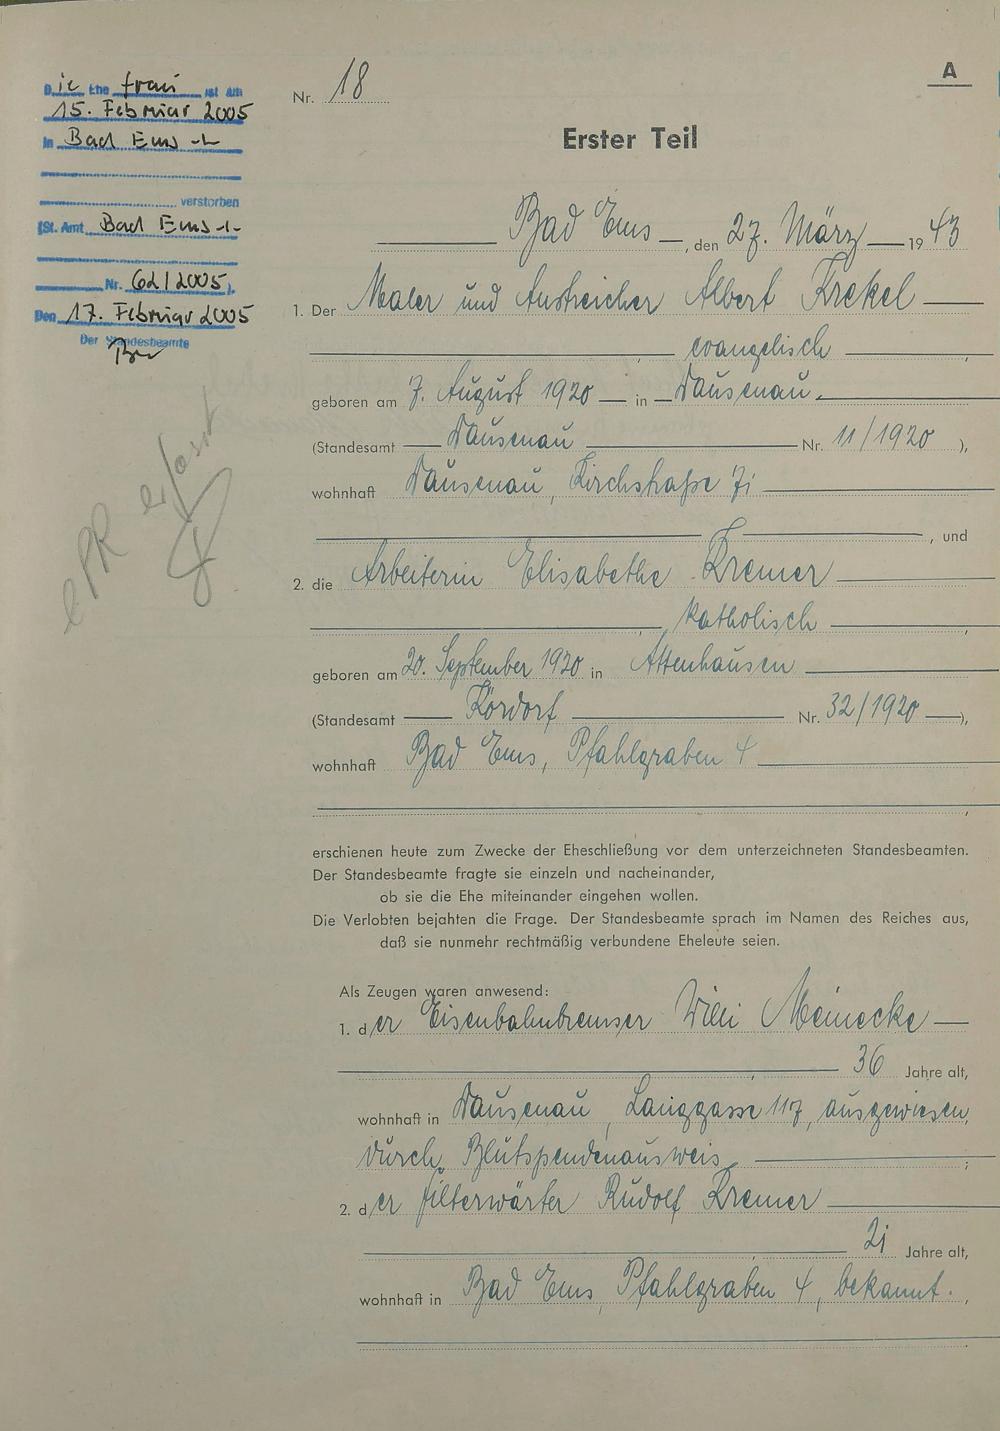 Die Ehefrau ist am
15. Februar 2005
in Bad Ems
verstorben
(St. Amt Bad Ems
Nr. 62/2005).
Den 17. Februar 2005
Der Standesbeamte
ePR erfasst
A
Nr. 18
Erster Teil
Bad Ems, den 27. März 1943
1. Der Maler und Anstreicher Albert Krekel
evangelisch,
geboren am 7. August 1920 in Dausenau
(Standesamt Dausenau Nr. 11/1920),
wohnhaft Dausenau, Kirchstraße 71
, und
2. die Arbeiterin Elisabethe Kremer
, katholisch,
geboren am 20. September 1920 in Attenhausen
(Standesamt Kördorf Nr. 32/1920),
wohnhaft Bad Ems, Pfahlgraben 4
,
erschienen heute zum Zwecke der Eheschließung vor dem unterzeichneten Standesbeamten.
Der Standesbeamte fragte sie einzeln und nacheinander,
ob sie die Ehe miteinander eingehen wollen.
Die Verlobten bejahten die Frage. Der Standesbeamte sprach im Namen des Reiches aus,
daß sie nunmehr rechtmäßig verbundene Eheleute seien.
Als Zeugen waren anwesend:
1. der Eisenbahnbremser Willi Meinecke
, 36 Jahre alt,
wohnhaft in Dausenau, Langgasse 117, ausgewiesen
durch Blutspendenausweis ;
2. der Filterwärter Rudolf Kremer
, 21 Jahre alt,
wohnhaft in Bad Ems, Pfahlgraben 4, bekannt.,